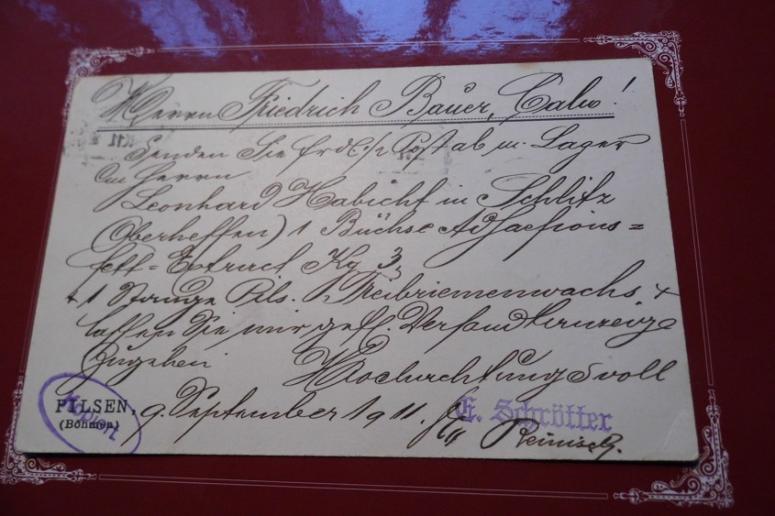 Herrn Friedrich Bauer, Calw!
Senden Sie frdl. p. Post ab m. Lager
an Herrn
Leonhard Habicht in Schlitz
(Oberhessen) 1 Büchse Adhaesions=
fett=Extract Kg 3
+ 1 Stange Pils. Treibriemenwachs +
lassen Sie mir gefl. Versandtanzeige
zugehen Hochachtungsvoll
PILSEN, 9. September 1911. E. Schrötter
(Böhmen)